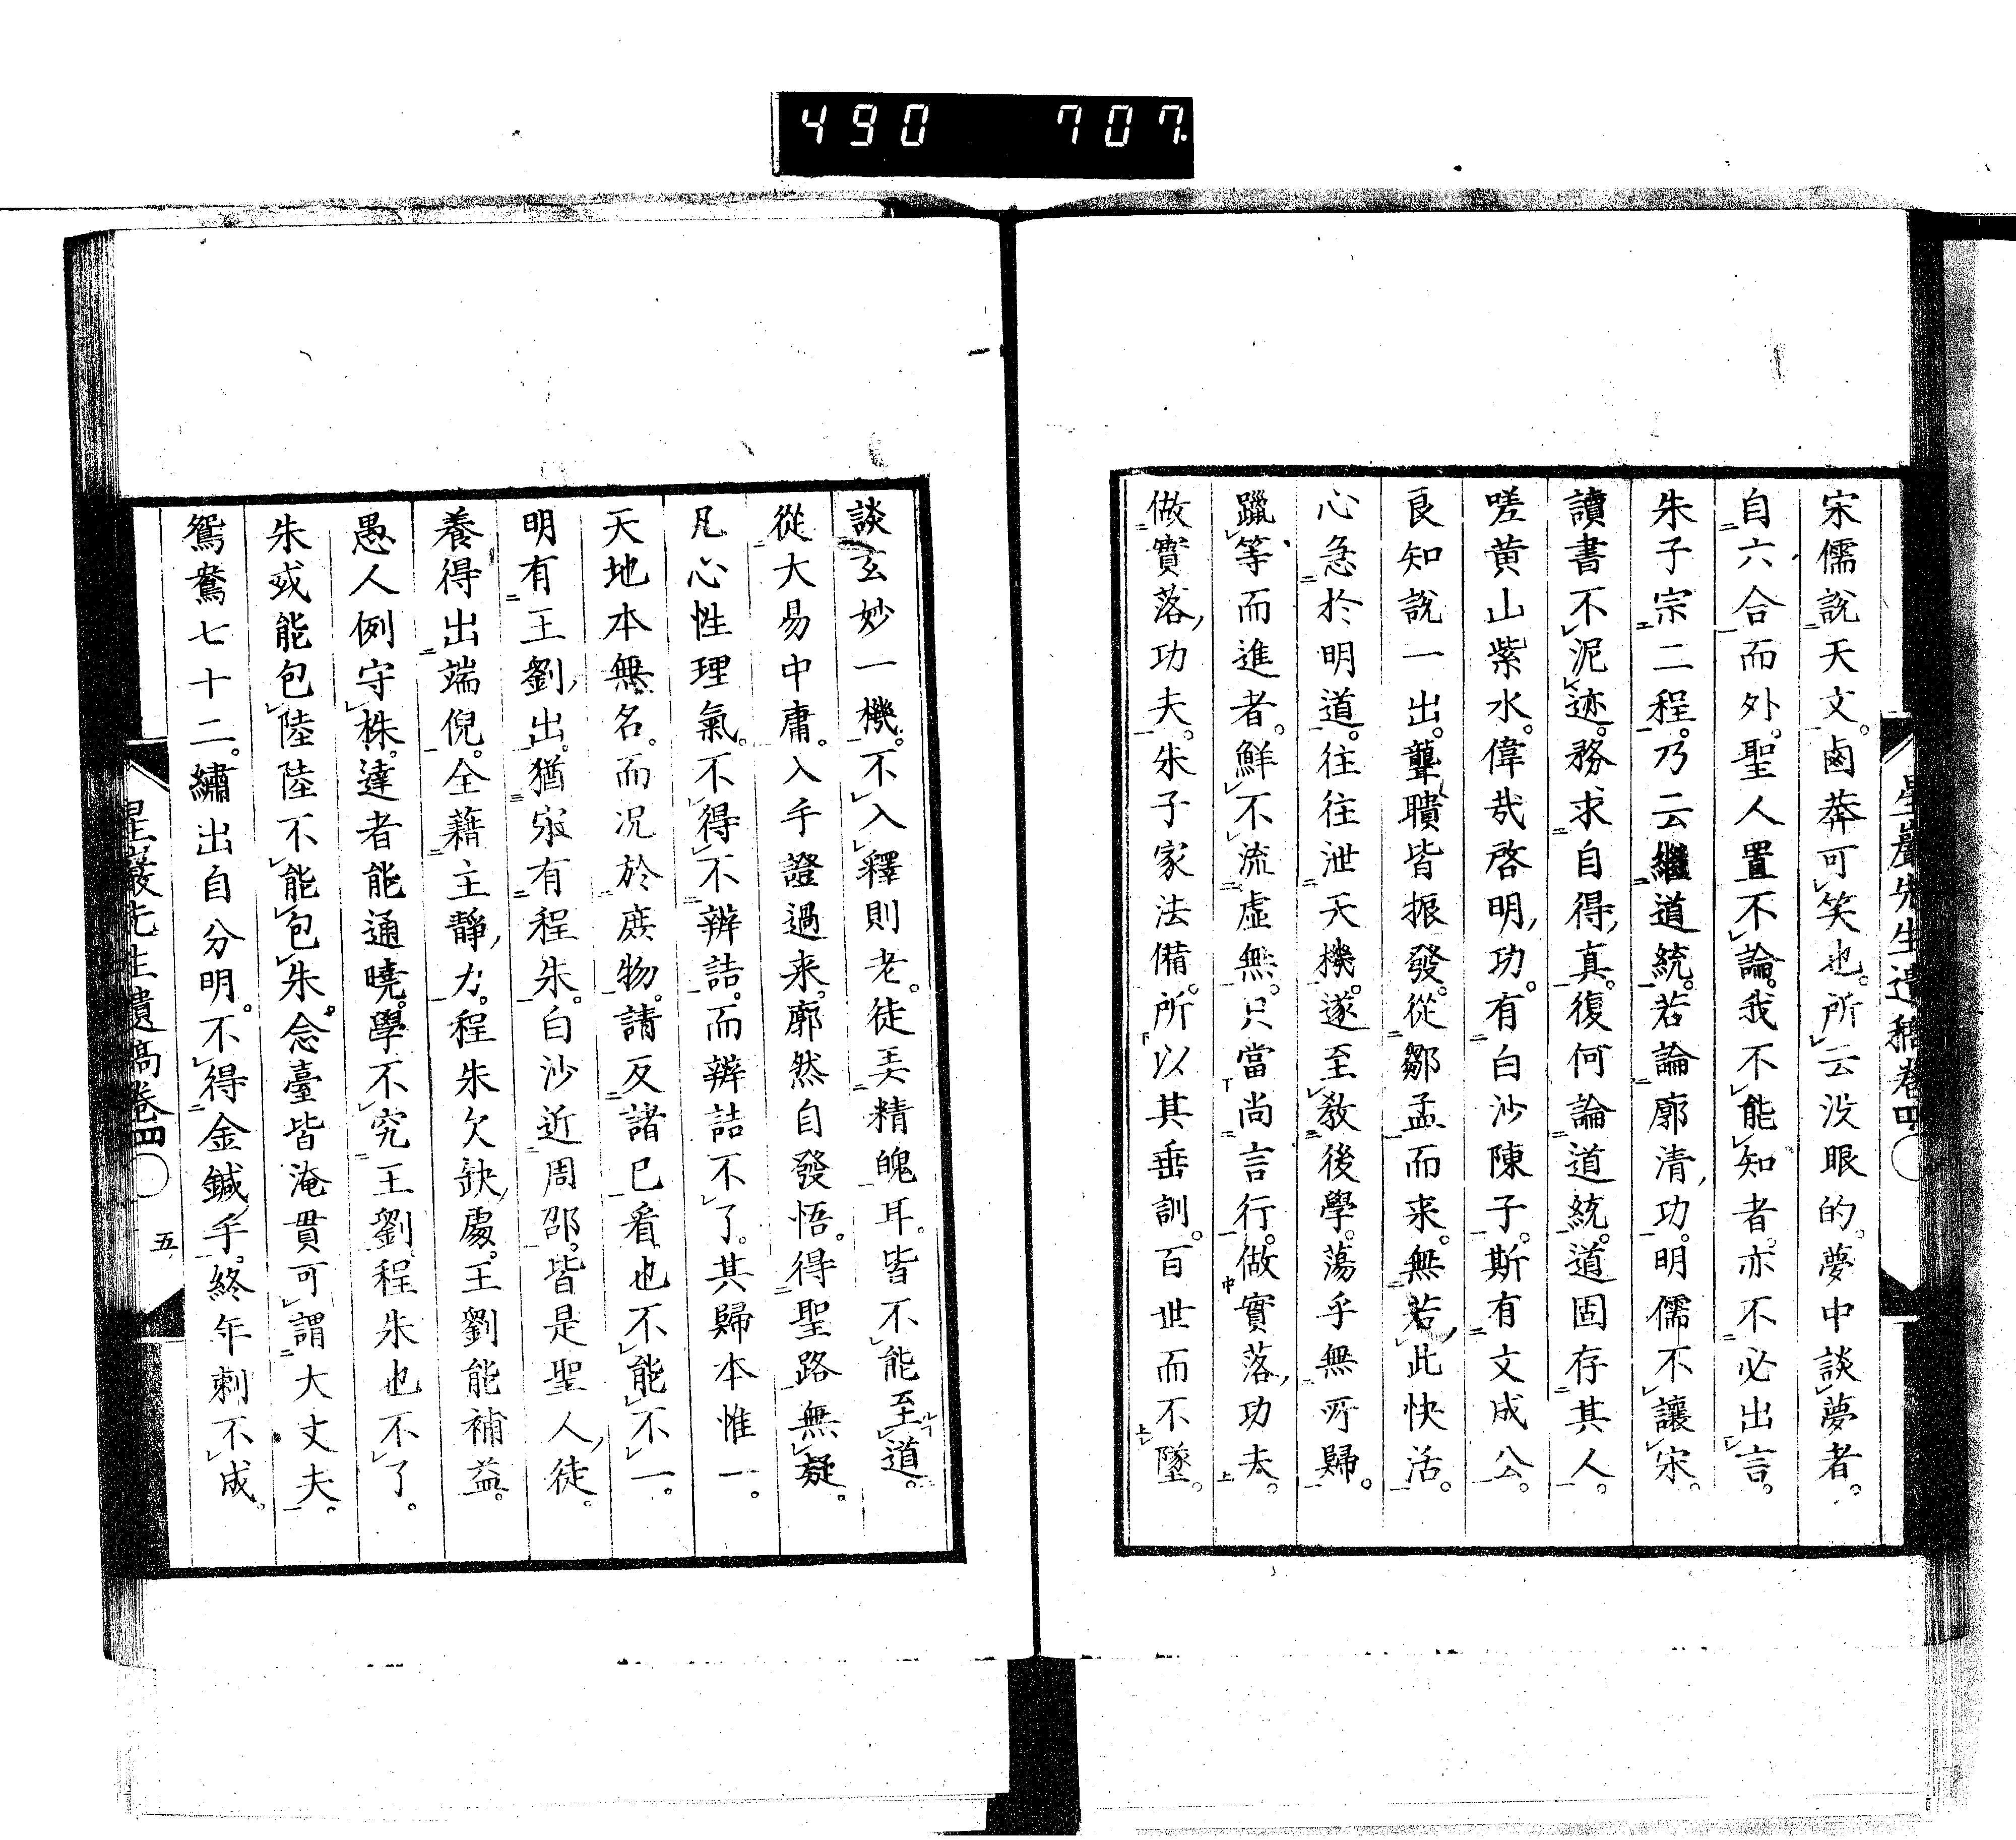 490 707
星巖先生遺稿卷四
宋儒說天文。鹵莽可笑也。所云没眼的。夢中談夢者。
自六合而外。聖人置不論。我不能知者。亦不必出言。
朱子宗二程。乃云繼道統。若論廓清功。明儒不讓宋。
讀書不泥迹。務求自得真。復何論道統。道固存其人。
嗟黄山紫水。偉哉啓明功。有白沙陳子。斯有文成公。
良知說一出。聾聵皆振發。從鄒孟而来。無若此快活。
心急於明道。往往泄天機。遂至教後學。蕩乎無所歸。
躐等而進者。鮮不流虛無。只當尚言行。做實落功夫。
做實落功夫。朱子家法備。所以其垂訓。百世而不墜。
談玄妙一機。不入釋則老。徒弄精魄耳。皆不能至道。
從大易中庸。入手證過来。廓然自發悟。得聖路無疑。
凡心性理氣。不得不辨詰。而辨詰不了。其歸本惟一。
天地本無名。而况於庶物。請反諸已看。也不能不一。
明有王劉出。猶宋有程朱。白沙近周邵。皆是聖人徒。
養得出端倪。全藉主靜力。程朱欠缺處。王劉能補益。
愚人例守株。達者能通曉。學不究王劉。程朱也不了。
朱或能包陸。陸不能包朱。念臺皆淹貫。可謂大丈夫。
鴛鴦七十二。繡出自分明。不得金鍼手。終年刺不成。
星巖先生遺稿卷四
五